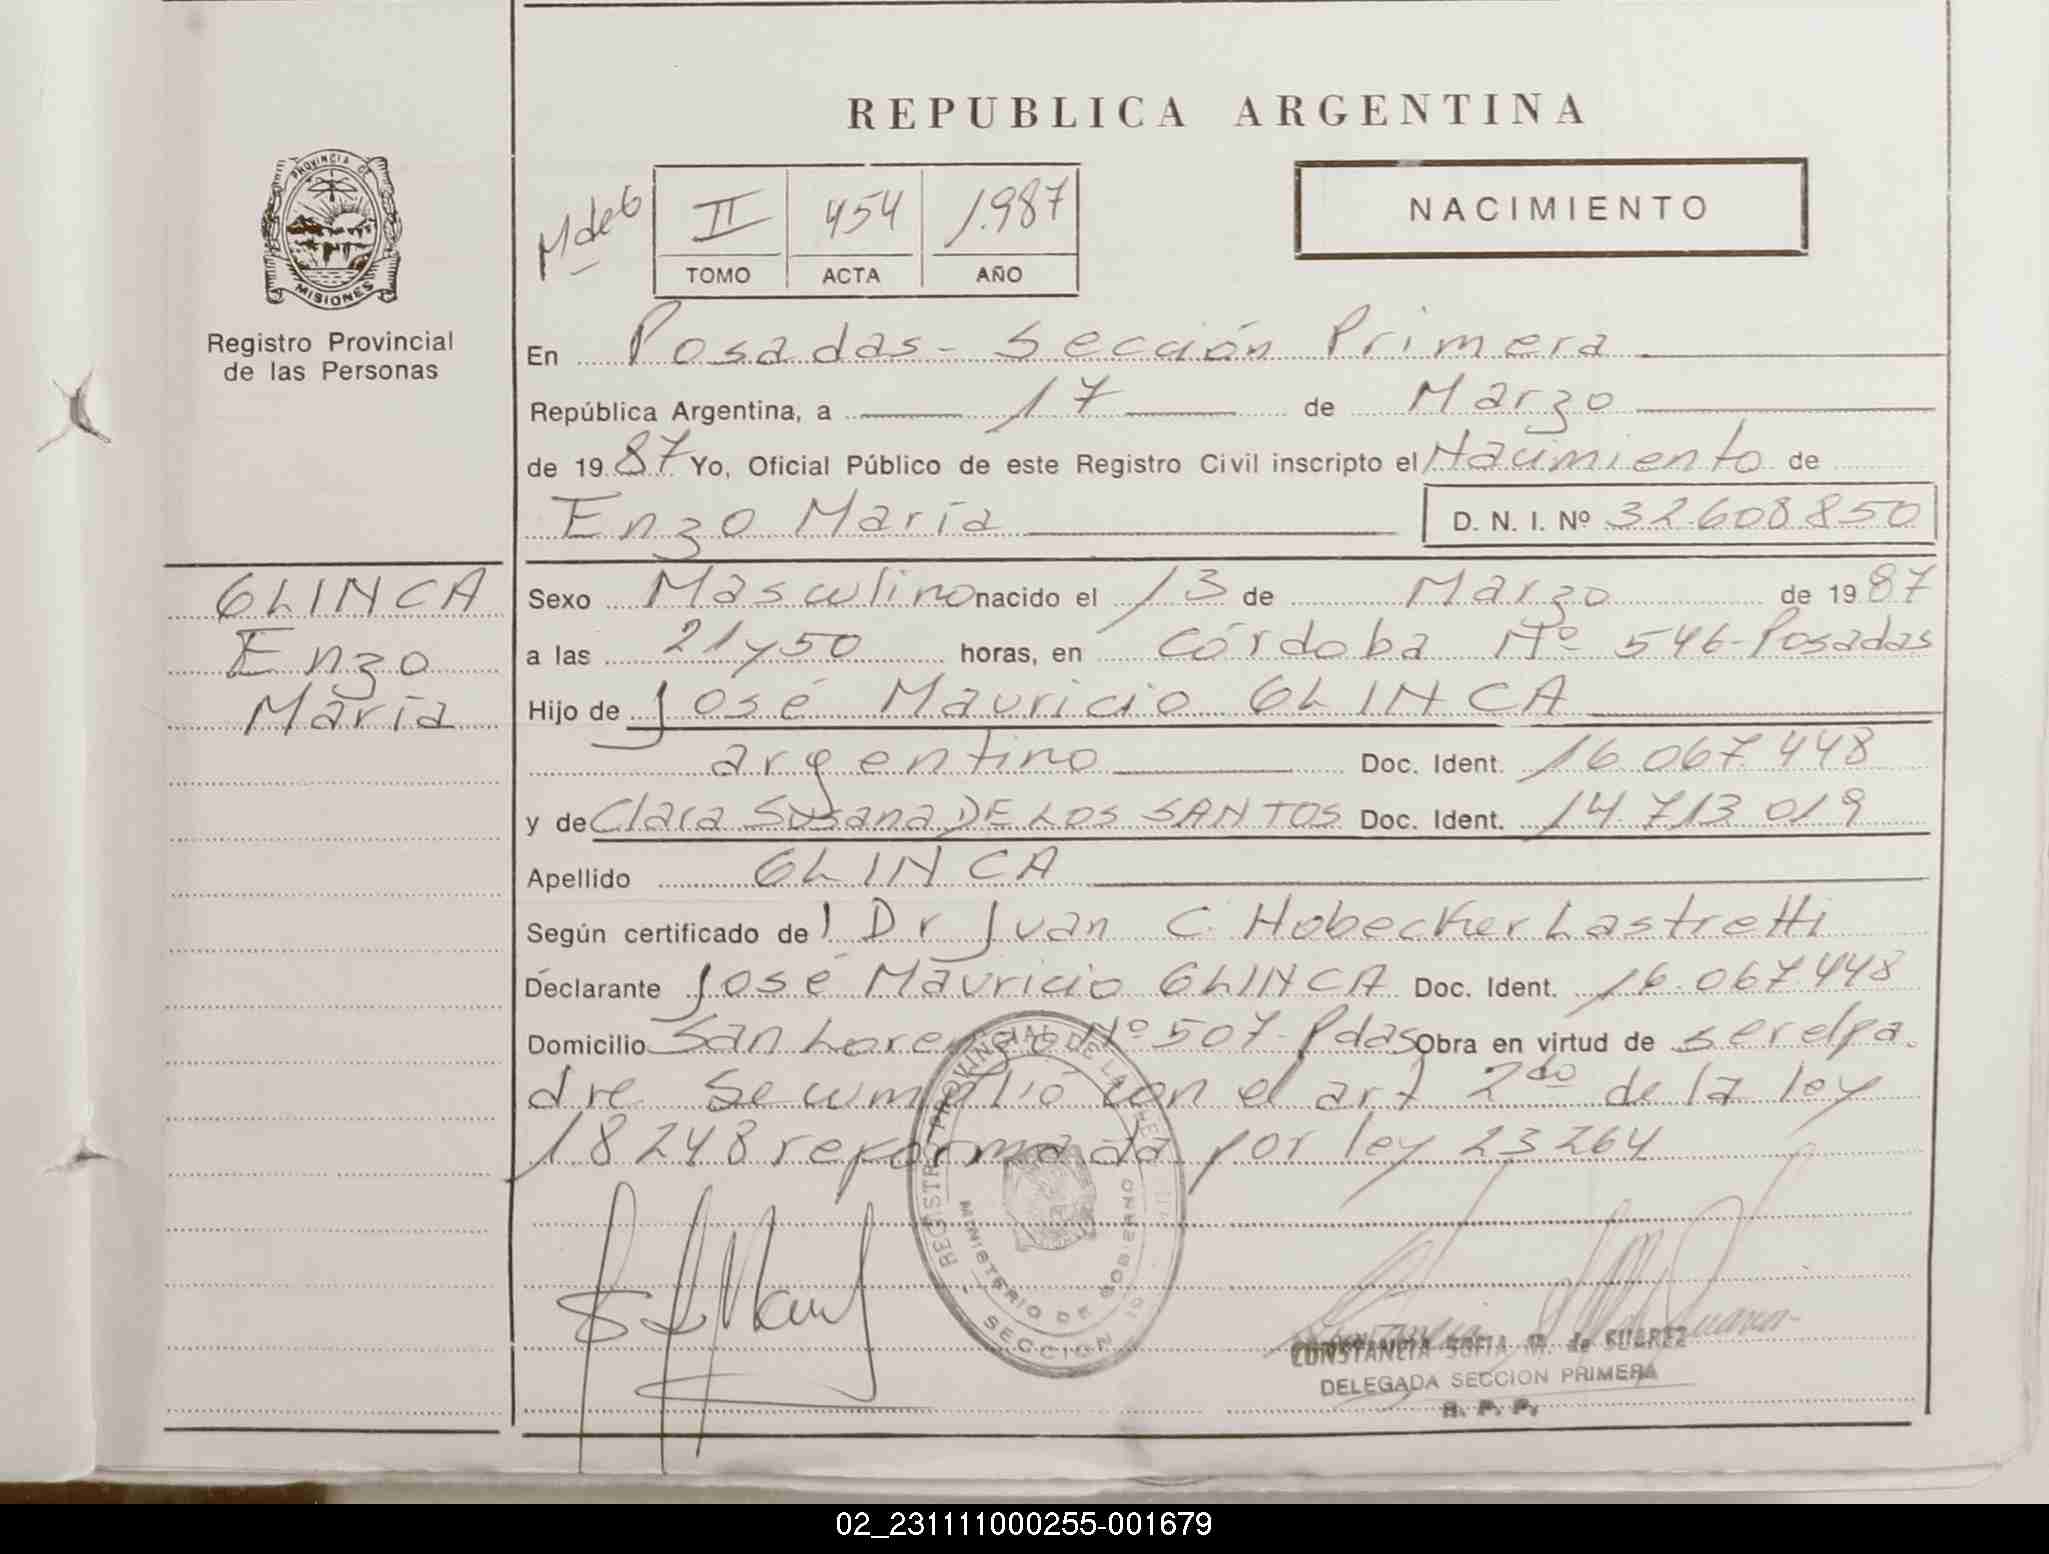 REPUBLICA ARGENTINA
NACIMIENTO
PROVINCIA DE
MISIONES
Registro Provincial
de las Personas
M de 6
II 454 1.987
TOMO ACTA AÑO
En Posadas - Sección Primera
República Argentina, a 17 de Marzo
de 1987 Yo, Oficial Público de este Registro Civil inscripto el Nacimiento de
Enzo María D. N. I. Nº 32.608.850
GLINCA
Enzo
María
Sexo Masculino nacido el 13 de Marzo de 1987
a las 21 y 50 horas, en Córdoba Nº 546 - Posadas
Hijo de José Mauricio GLINCA
argentino Doc. Ident. 16.067.448
y de Clara Susana DE LOS SANTOS Doc. Ident. 14.713.019
Apellido GLINCA
Según certificado del Dr Juan C. Hobecker Lastretti
Declarante José Mauricio GLINCA Doc. Ident. 16.067.448
Domicilio San Lorenzo Nº 507 - Pdas Obra en virtud de ser el pa
dre Se cumplió con el art 2do de la ley
18248 reformada por ley 23264
REGISTRO PROVINCIAL DE LAS
MINISTERIO DE GOBIERNO
SECCION 1º
CONSTANCIA SOFIA M. de SUAREZ
DELEGADA SECCION PRIMERA
R. P. P.
02_231111000255-001679